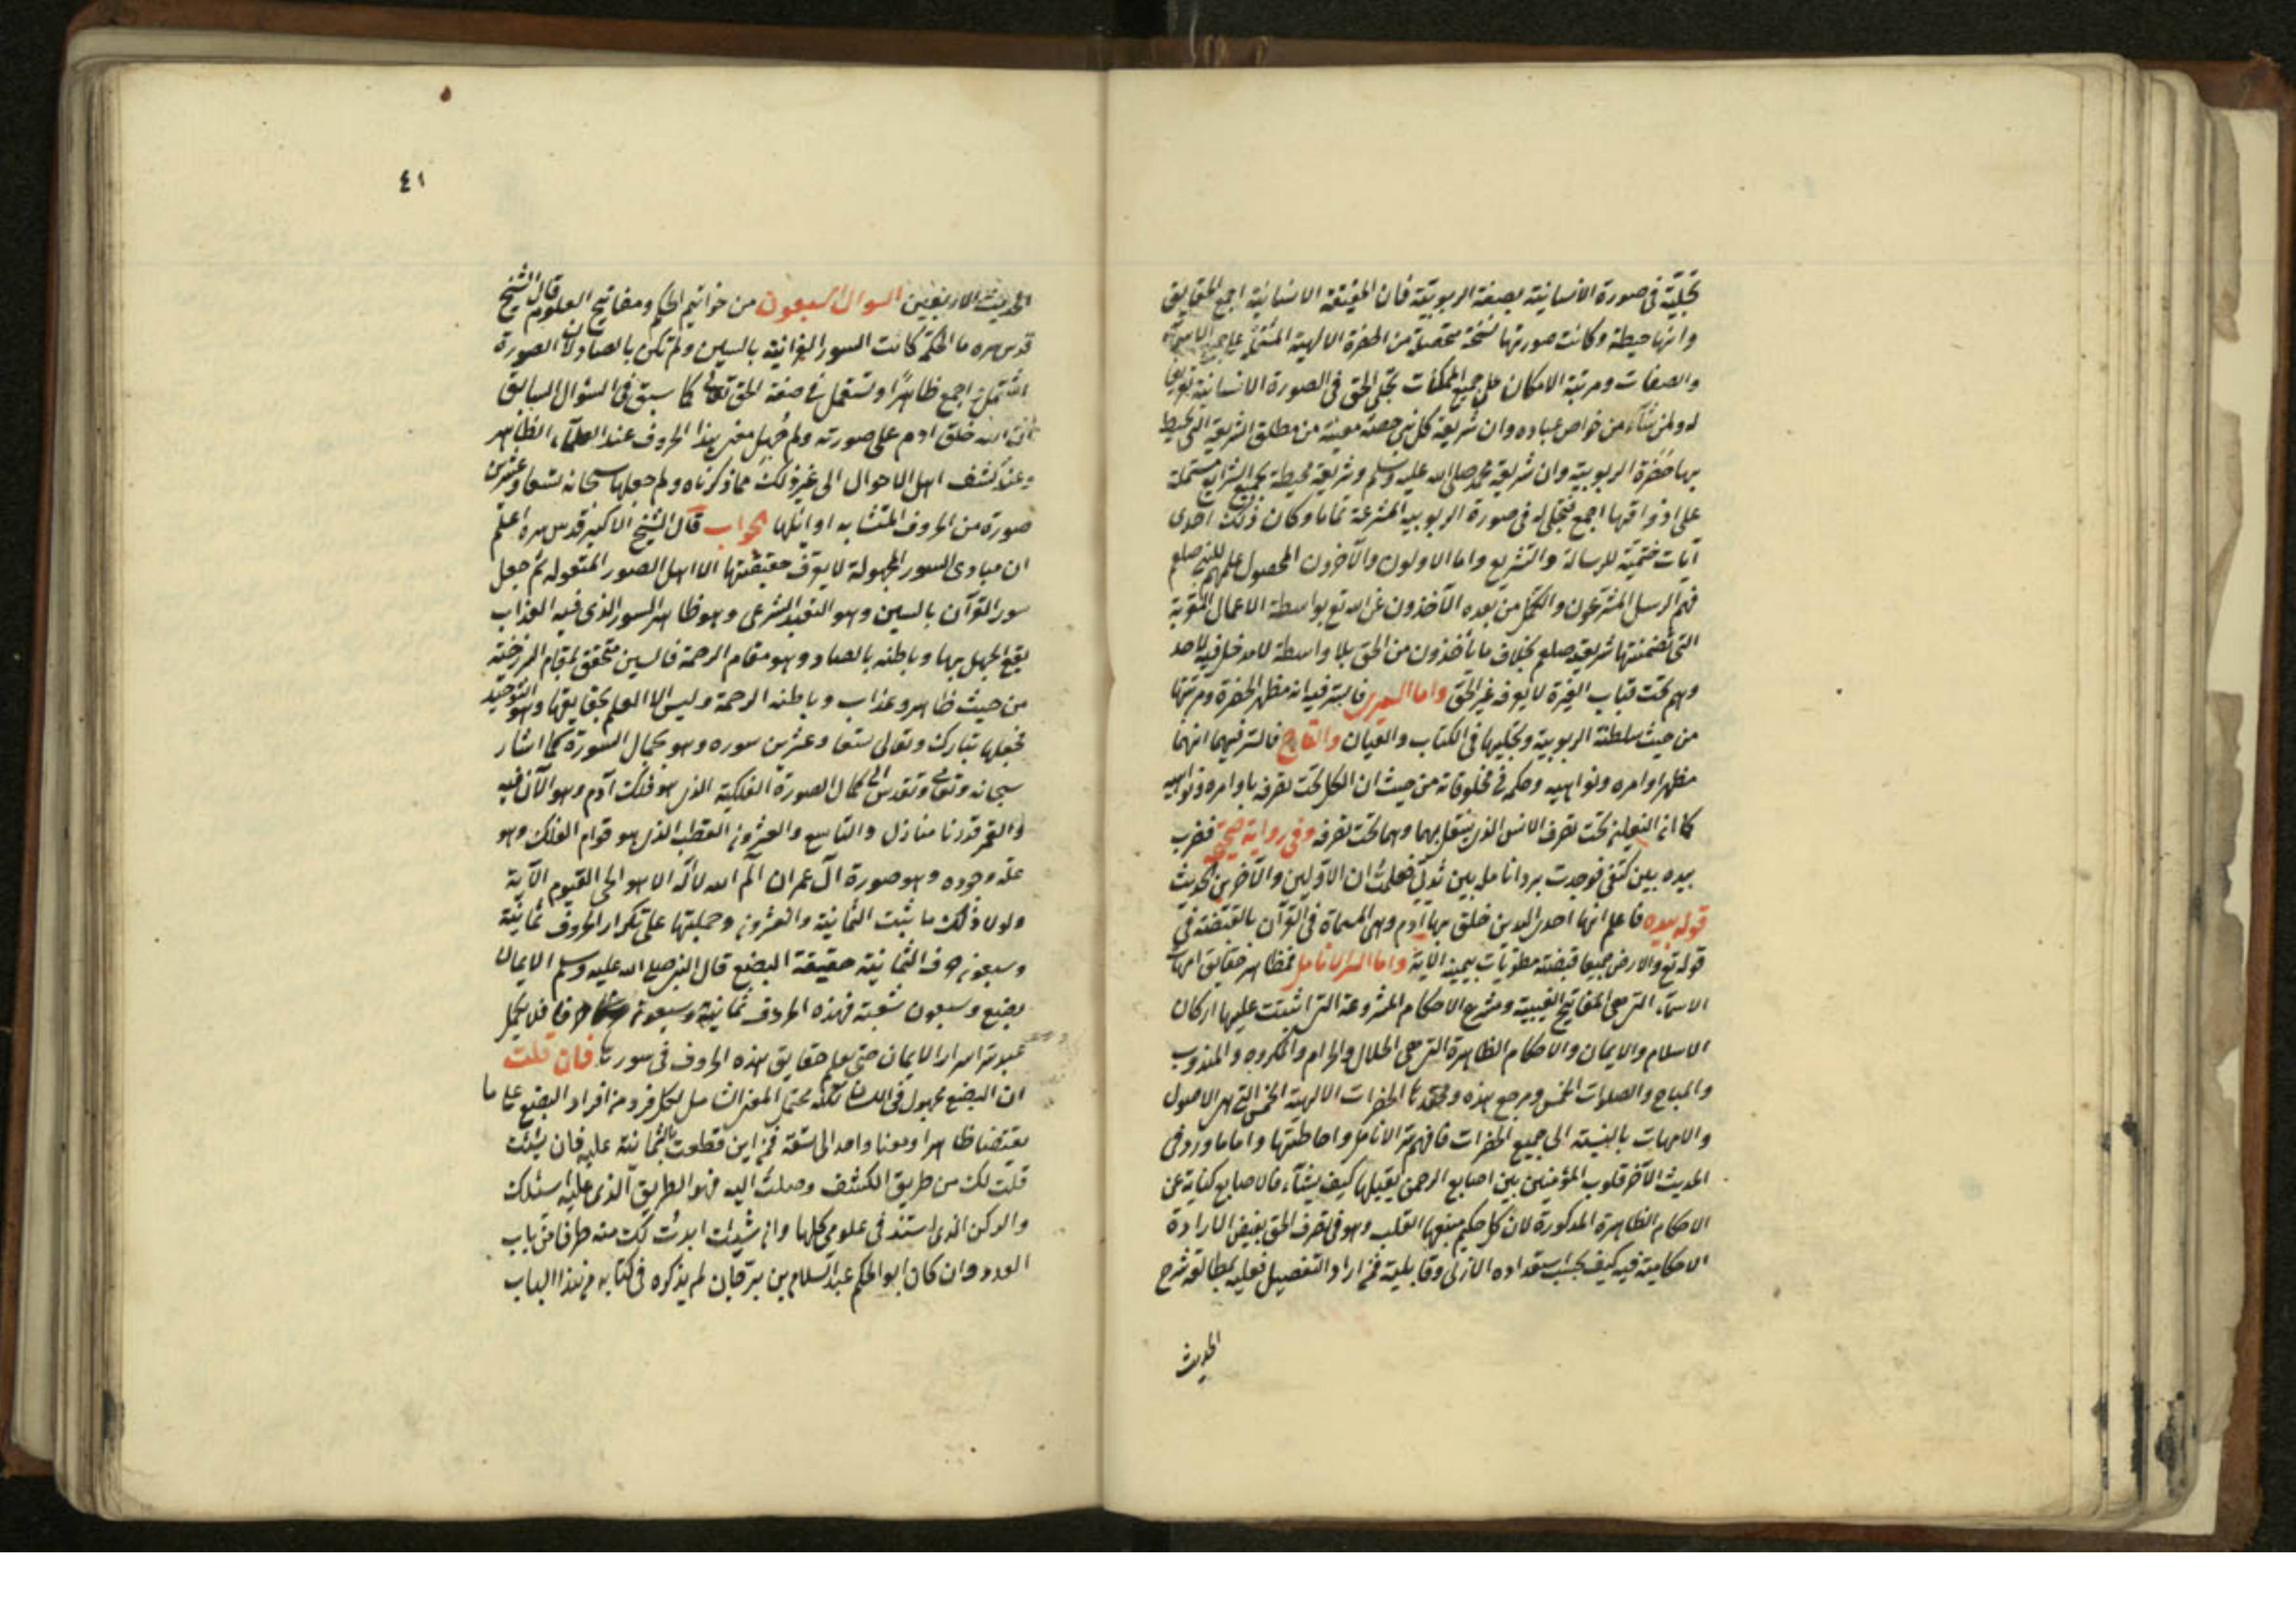 تجليه في صورة الانسانية بصفة الربوبية فان الحقيقة الانسانية اجمع الحقايق
وانها حيطة وكانت صورتها نسخة متحصلة من الحضرة الالهية المشتملة على جميع الاسماء
والصفات ومرتبة الامكان على جميع الممكنات تجلى الحق في الصورة الانسانية تعريفا
له ولمن شاء من خواص عباده وان شريعة كل نبي حصة معينة من مطلق الشريعة التي تحيط
بها حضرة الربوبية وان شريعة محمد صلى الله عليه وسلم وشريعته محيطة بجميع الشرايع مشتملة
على اذواقها اجمع فتجلى له في صورة الربوبية المشرعة تماما وكان ذلك احدى
آيات ختميته للرسالة والتشريع واما الاولون والآخرون المحصول علمهم للنبي صلعم
فهم الرسل المشرعون والكمل من بعده الآخذون عن الله تع بواسطة الاعمال المقربة
التي تضمنتها شريعته صلعم بخلاف ما يأخذون من الحق بلا واسطة لا مدخل فيه لاحد
وهم تحت قباب الغيرة لا يعرفه غير الحق واما السرير فالسر فيه انه مظهر الحضرة ومرتبتها
من حيث سلطنة الربوبية وتجليها في الكتاب والعيان والتاج فالسر فيهما انهما
مظهر اوامره ونواهيه وحكمه في مخلوقاته من حيث ان الكل تحت تصرفه باوامره ونواهيه
كما ان النعلين تحت تصرف الانس الذي ينتقل بهما وهما تحت تصرفه وفي رواية صحيحة فضرب
بيده بين كتفي فوجدت برد انامله بين ثديي فعلمت ان الاولين والآخرين الحديث
قوله بيده فاعلم انها احدى اليدين خلق بها آدم وهي المسماة في القرآن بالقبضة في
قوله تع والارض جميعا قبضته مطويات بيمينه الآية واما السر الانامل فمظاهر حقايق امهات
الاسماء التي هي المفاتيح الغيبية ومشرع الاحكام المشروعة التي اثبتت عليها اركان
الاسلام والايمان والاحكام الظاهرة التي هي الحلال والحرام والمكروه والمندوب
والمباح والصلوات الخمس ومرجع هذه الحضرات الالهية الخمس التي هي الاصول
والامهات بالنسبة الى جميع الحضرات فافهم سر الانامل واحاطتها واما ما ورد في
الحديث الآخر قلوب المؤمنين بين اصابع الرحمن يقلبها كيف يشاء فالاصابع كناية عن
الاحكام الظاهرة المذكورة لان كل حكم منبعها القلب وهو في تصرف الحق بفيض الارادة
الاحكامية فيه كيف بحسب استعداده الازلي وقابليته فمن اراد التفصيل فعليه بمطالعة شرح
الحديث
٤١
الحديث الاربعين السوال السبعون من خواتيم الحكم ومفاتيح العلوم قال الشيخ
قدس سره ما الحكمة كانت السور القرآنية بالسين ولم تكن بالصاد ولان الصورة
اشتملت اجمع ظاهرا وتستعمل في صفة الحق تعالى كما سبق في السؤال السابق
ان الله خلق آدم على صورته ولم جهل معنى هذا الحروف عند العلماء الظاهر
وعند كشف اهل الاحوال الى غير ذلك مما ذكرناه ولم جعلها سبحانه تسعا وعشرين
صورة من الحروف المتشابه اوائلها الجواب قال الشيخ الاكبر قدس سره اعلم
ان مبادى السور المجهولة لا يعرف حقيقتها الا اهل الصور المنقوله ثم جعل
سور القرآن بالسين وهو التعبد الشرعي وهو ظاهر السور الذي فيه العذاب
يقع الجهل بها وباطنه بالصاد وهو مقام الرحمة فالسين متحقق بمقام البرزخية
من حيث ظاهره عذاب وباطنه الرحمة وليس الا العلم بحقايقها وهو التوحيد
فجعلها تبارك وتعالى تسعا وعشرين سوره وهو بكمال السورة كما اشار
سبحانه وتعالى وتقدس الى كمال الصورة الفلكية الذي هو فلك آدم وهو الآن فيه
والقمر قدرنا منازل والتاسع والعشرون القطب الذي هو قوام الفلك وهو
علة وجوده وهو صورة آل عمران الم الله لا اله الا هو الحي القيوم الآية
ولولا ذلك ما ثبت الثمانية والعشرون وجملتها على تكرار الحروف ثمانية
وسبعون حرف الثمانية حقيقة البضع قال النبي صلى الله عليه وسلم الايمان
بضع وسبعون شعبة فهذه الحروف ثمانية وسبعون حرفا فلا يكمل
عبد سر اسرار الايمان حتى يعلم حقايق هذه الحروف في سورتها فان قلت
ان البضع مجهول في اللسان لكنه محتمل المعنى الشامل لكل فرد من افراد البضع على ما
يقتضا ظاهرا ومعنا واحد الى تسعة فمن اين قطعت بالثمانية عليه فان شئت
قلت لك من طريق الكشف وصلت اليه فهو الطريق الذي عليه اسلك
والركن الذي استند في علومي كلها وان شئت ابدئت لك منه طرفا من باب
العدد وان كان ابو الحكم عبد السلام بن برجان لم يذكره في كتابه من هذا الباب